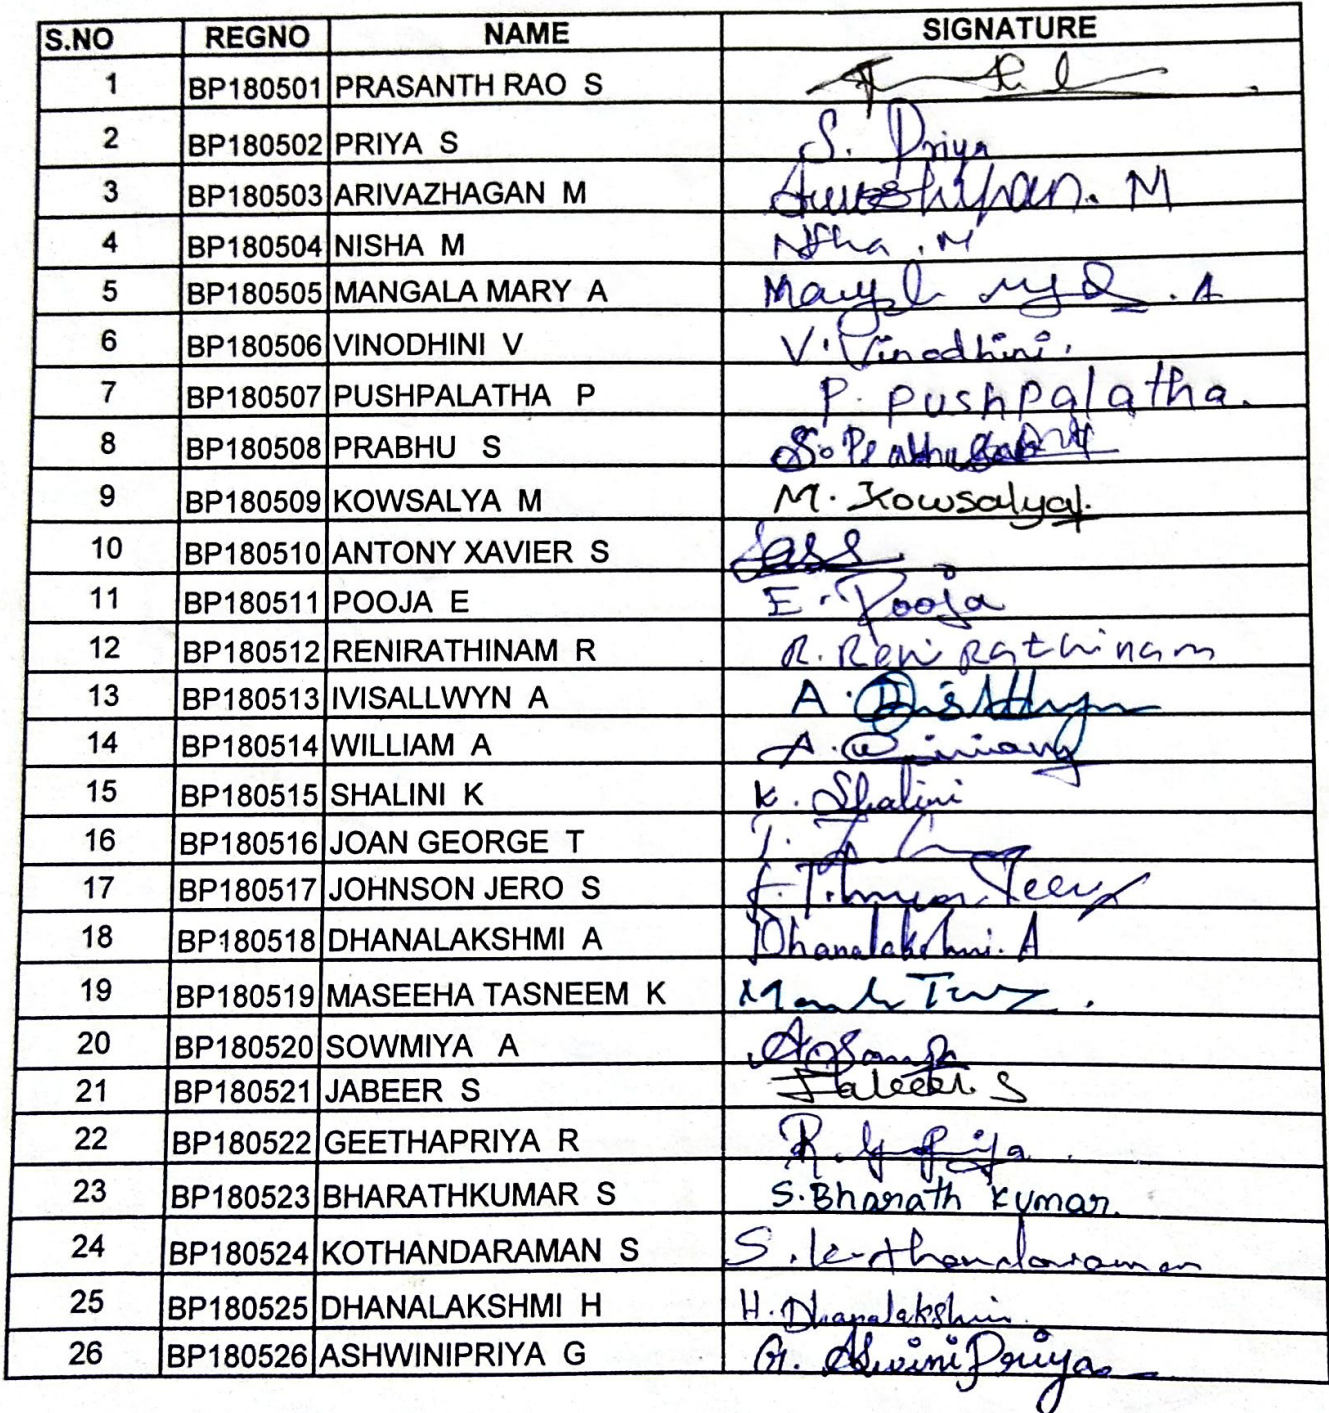 S.NO REGNO NAME SIGNATURE
1 BP180501 PRASANTH RAO S
2 BP180502 PRIYA S S. Priya
3 BP180503 ARIVAZHAGAN M M
4 BP180504 NISHA M Nisha . M
5 BP180505 MANGALA MARY A . A
6 BP180506 VINODHINI V V. Vinodhini.
7 BP180507 PUSHPALATHA P P. pushpalatha.
8 BP180508 PRABHU S
9 BP180509 KOWSALYA M M. Kowsalya
10 BP180510 ANTONY XAVIER S
11 BP180511 POOJA E E. Pooja
12 BP180512 RENIRATHINAM R R. Reni Rathinam
13 BP180513 IVISALLWYN A A.
14 BP180514 WILLIAM A A.
15 BP180515 SHALINI K K. Shalini
16 BP180516 JOAN GEORGE T
17 BP180517 JOHNSON JERO S
18 BP180518 DHANALAKSHMI A Dhanalakshmi. A
19 BP180519 MASEEHA TASNEEM K
20 BP180520 SOWMIYA A
21 BP180521 JABEER S Jabeer. S
22 BP180522 GEETHAPRIYA R R.
23 BP180523 BHARATHKUMAR S S. Bharath Kumar.
24 BP180524 KOTHANDARAMAN S S. Kothandaraman
25 BP180525 DHANALAKSHMI H H. Dhanalakshmi
26 BP180526 ASHWINIPRIYA G G. AshwiniPriya